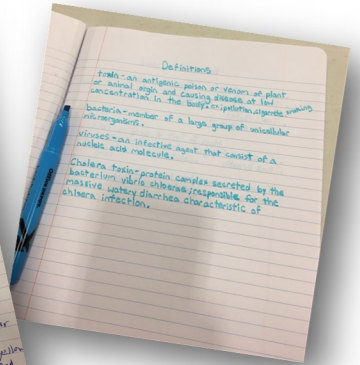 Definitions
toxin - an antigenic poison or venom of plant
or animal origin and causing disease at low
concentration in the body, pollution, cigarette smoking
bacteria - member of a large group of unicellular
microorganisms.
viruses - an infective agent that consist of a
nucleic acid molecule.
Cholera toxin - protein complex secreted by the
bacterium vibrio cholerae, responsible for the
massive watery diarrhea characteristic of
cholera infection.